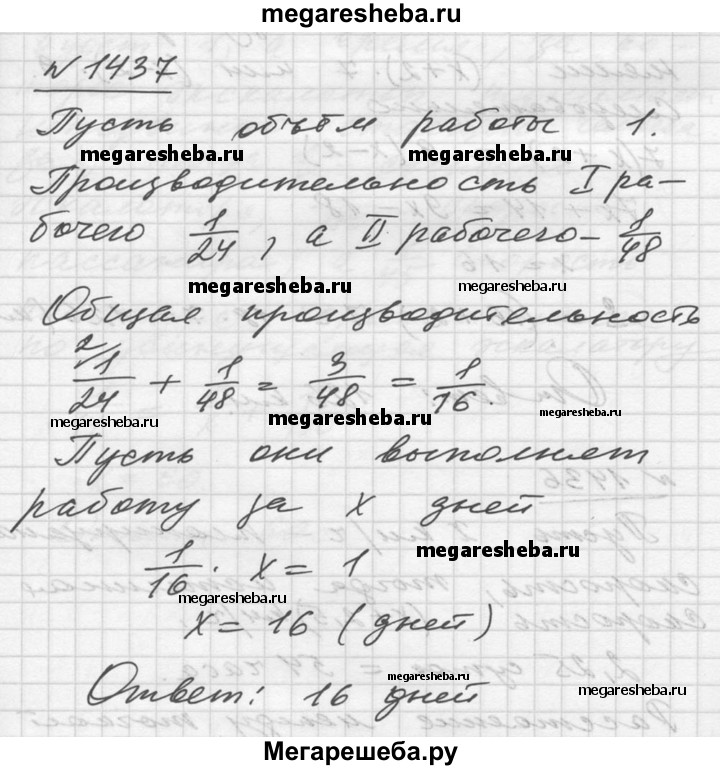 megaresheba.ru
№1437
Пусть объём работы 1.
megaresheba.ru megaresheba.ru
Производительность I ра-
бочего 1/24, а II рабочего – 1/48
megaresheba.ru
Общая производительность
2/ 1/24 + 1/48 = 3/48 = 1/16.
megaresheba.ru megaresheba.ru megaresheba.ru
Пусть они выполнят
работу за x дней
megaresheba.ru
1/16 · x = 1
megaresheba.ru
x = 16 (дней)
megaresheba.ru
Ответ: 16 дней
megaresheba.ru
Мегарешеба.ру